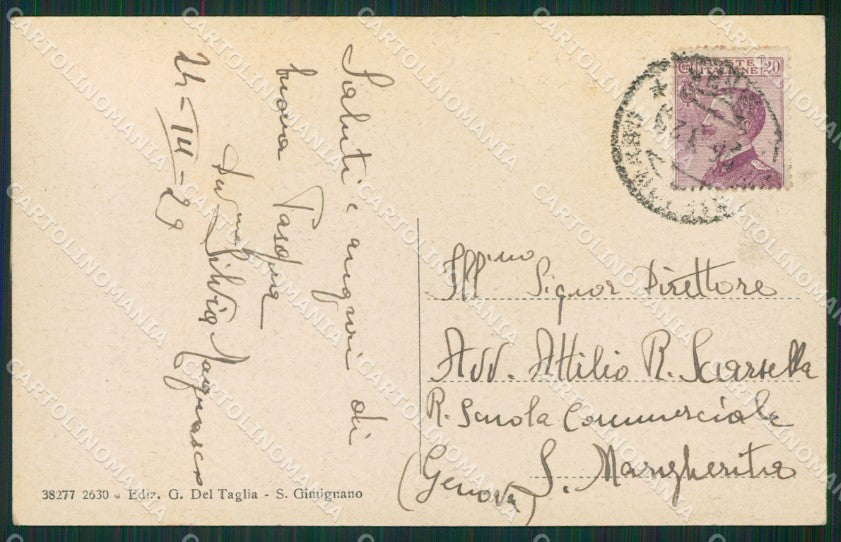 Saluti e auguri di
buona Pasqua
Silvia Magnasco
24-III-29
POSTE
ITALIANE
20
Ill.mo Signor Direttore
Avv. Attilio R. Scarsella
R. Scuola Commerciale
S. Margherita
(Genova)
38277 2630 - Ediz. G. Del Taglia - S. Gimignano
CARTOLINOMANIA